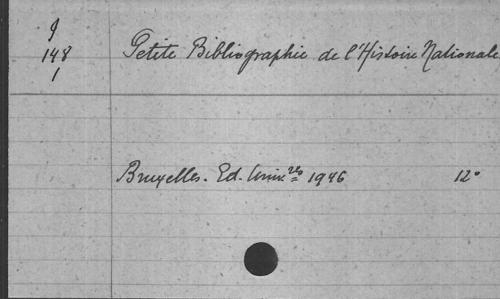 9
148
1
Petite Bibliographie de l'Histoire Nationale
Bruxelles. Ed. Univ.res 1946 12°